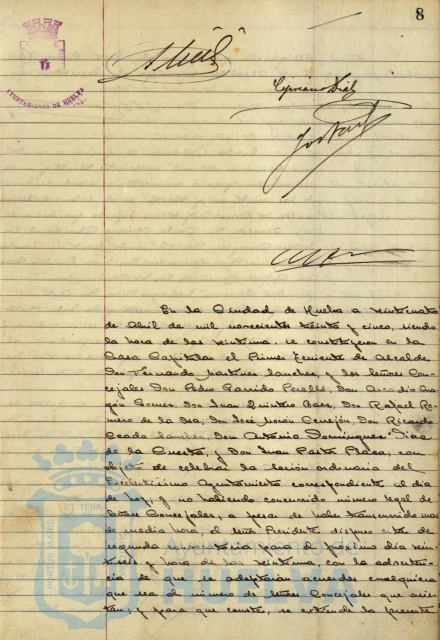 8
AYUNTAMIENTO DE HUELVA
Cipriano Diaz
En la Ciudad de Huelva a veinticuatro
de Abril de mil novecientos treinta y cinco, siendo
la hora de las veintiuna, se constituyeron en la
Casa Capitular el Primer Teniente de Alcalde
Don Fernando Martinez Sanchez, y los señores Con-
cejales Don Pedro Garrido Perelló, Don Arcadio Ara-
gón Gomez, Don Juan Quintero Baez, Don Rafael Ro-
mero de la Osa, Don José Morón Cerrejón, Don Ricardo
Terrades Sanchez, Don Antonio Dominguez Diaz
de la Cuesta, y Don Juan Pasto Plaza, con
objeto de celebrar la sesión ordinaria del
Excelentisimo Ayuntamiento correspondiente al dia
de hoy, y no habiendo concurrido número legal de
señores Concejales, a pesar de haber transcurrido mas
de media hora, el señor Presidente dispuso citar de
segunda convocatoria para el próximo dia vein-
tiseis y hora de las veintiuna, con la adverten-
cia de que se adoptarán acuerdos cualquiera
que sea el número de señores Concejales que asis-
tan; y para que conste, se extiende la presente
PORTUS MARIS ET TERRAE CUSTODIA
Ayuntamiento de
HUELVA